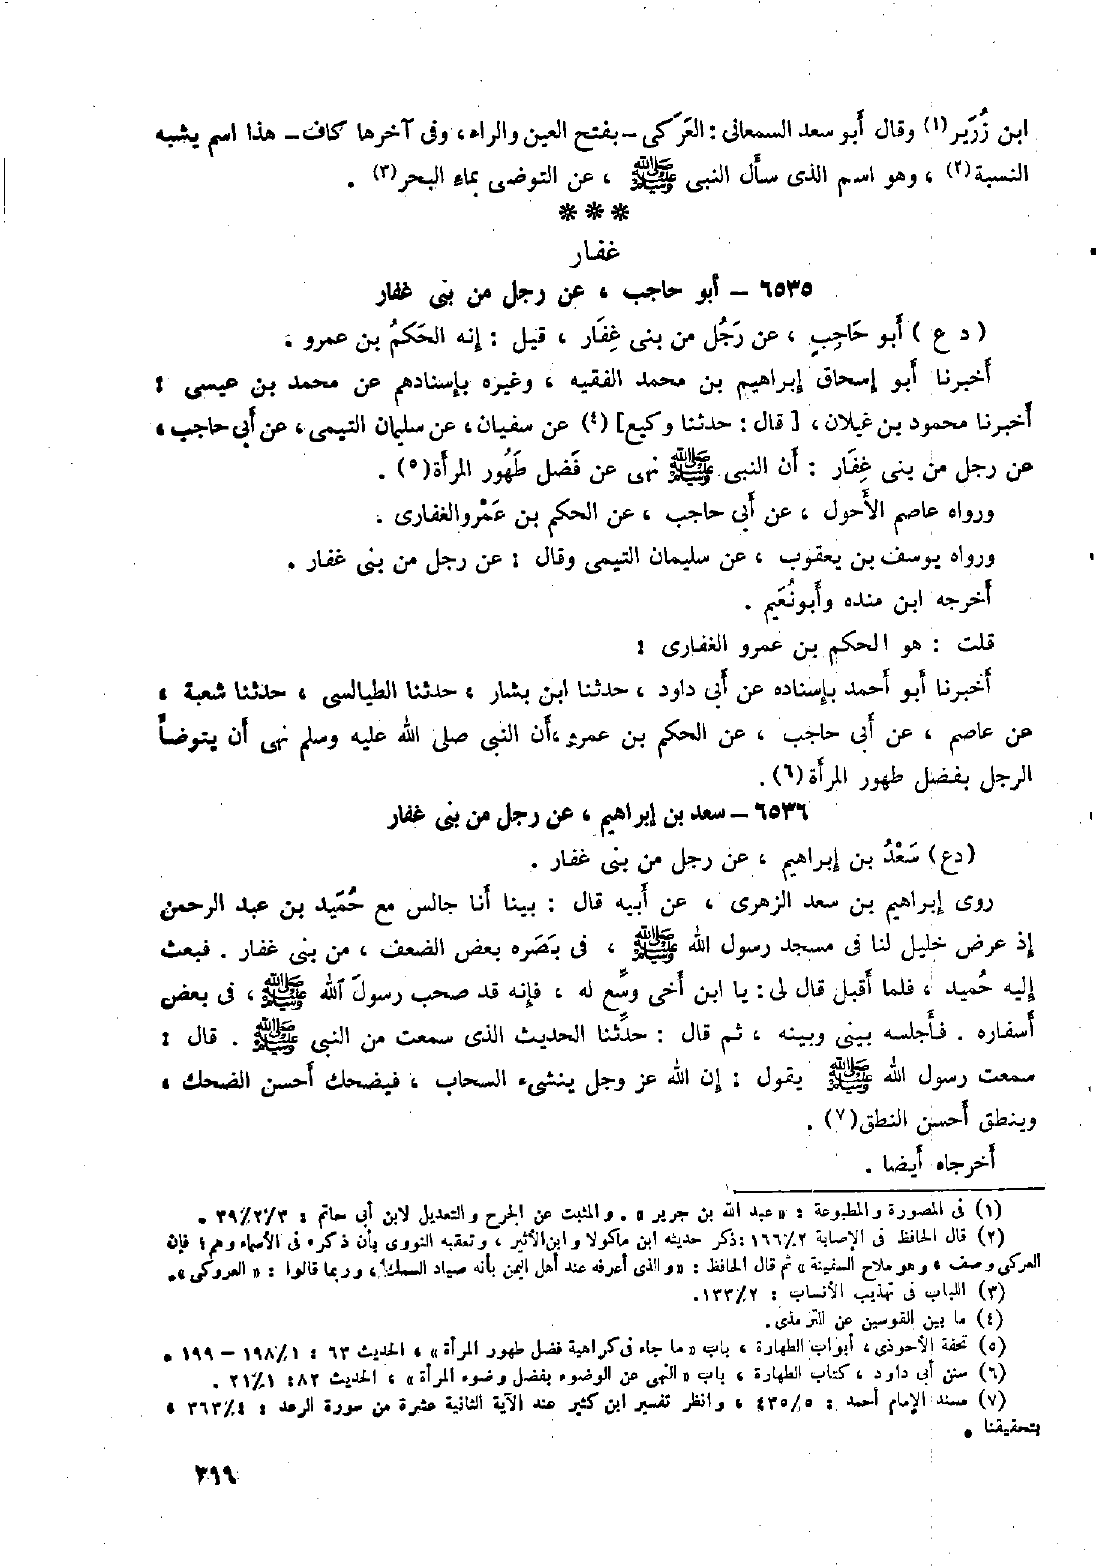 ابن زُرَير(١) وقال أبو سعد السمعانى : العَرَكى – بفتح العين والراء ، وفى آخرها كاف – هذا اسم يشبه
النسبة(٢) ، وهو اسم الذى سأل النبى ﷺ ، عن التوضى بماء البحر(٣) .
***
غفار
٦٥٣٥ – أبو حاجب ، عن رجل من بنى غفار
( د ع ) أَبو حَاجِبٍ ، عن رَجُل من بنى غِفَار ، قيل : إنه الحَكَمُ بن عمرو .
أخبرنا أبو إسحاق إبراهيم بن محمد الفقيه ، وغيره بإسنادهم عن محمد بن عيسى :
أخبرنا محمود بن غيلان ، [ قال : حدثنا وكيع] (٤) عن سفيان ، عن سليمان التيمى ، عن أبى حاجب ،
عن رجل من بنى غِفَار : أن النبى ﷺ نهى عن فَضل طَهُور المرأة(٥) .
ورواه عاصم الأَحول ، عن أبى حاجب ، عن الحكم بن عَمْرو الغفارى .
ورواه يوسف بن يعقوب ، عن سليمان التيمى وقال : عن رجل من بنى غفار .
أخرجه ابن منده وأبو نُعَيم .
قلت : هو الحكم بن عمرو الغفارى :
أخبرنا أبو أحمد بإسناده عن أبى داود ، حدثنا ابن بشار ، حدثنا الطيالسى ، حدثنا شعبة ،
عن عاصم ، عن أبى حاجب ، عن الحكم بن عمرو ، أن النبى صلى الله عليه وسلم نهى أن يتوضأ
الرجل بفضل طهور المرأة(٦) .
٦٥٣٦ – سعد بن إبراهيم ، عن رجل من بنى غفار
(دع) سَعْدُ بن إبراهيم ، عن رجل من بنى غفار .
روى إبراهيم بن سعد الزهرى ، عن أبيه قال : بينا أنا جالس مع حُمَيد بن عبد الرحمن
إذ عرض خليل لنا فى مسجد رسول الله ﷺ ، فى بَصَره بعض الضعف ، من بنى غفار . فبعث
إليه حُميد ، فلما أقبل قال لى : يا ابن أخى وسِّع له ، فإنه قد صحب رسولَ الله ﷺ ، فى بعض
أسفاره . فأجلسه بينى وبينه ، ثم قال : حدِّثنا الحديث الذى سمعت من النبى ﷺ . قال :
سمعت رسول الله ﷺ يقول : إن الله عز وجل ينشىء السحاب ، فيضحك أحسن الضحك ،
وينطق أحسن النطق(٧) .
أخرجاه أيضا .
(١) فى المصورة والمطبوعة : « عبد الله بن جرير » . والمثبت عن الجرح والتعديل لابن أبى حاتم : ٣/٢/٣٩ .
(٢) قال الحافظ فى الإصابة ٢/١٦٦ : ذكر حديثه ابن ماكولا وابن الأثير ، وتعقبه النووى بأن ذكره فى الأسماء وهم ؛ فإن
العركى وصف ، وهو ملاح السفينة » ثم قال الحافظ : « والذى أعرفه عند أهل اليمن بأنه صياد السمك ، وربما قالوا : « العروكى » .
(٣) اللباب فى تهذيب الأنساب : ٢/١٣٣ .
(٤) ما بين القوسين عن الترمذى .
(٥) تحفة الأحوذى ، أبواب الطهارة ، باب « ما جاء فى كراهية فضل طهور المرأة » ، الحديث ٦٣ : ١/١٩٨ – ١٩٩ .
(٦) سنن أبى داود ، كتاب الطهارة ، باب « النهى عن الوضوء بفضل وضوء المرأة » ، الحديث ٨٢ : ١/٢١ .
(٧) مسند الإمام أحمد : ٥/٤٣٥ ، وانظر تفسير ابن كثير عند الآية الثانية عشرة من سورة الرعد : ٤/٣٦٣ ،
بتحقيقنا .
٣٩٩